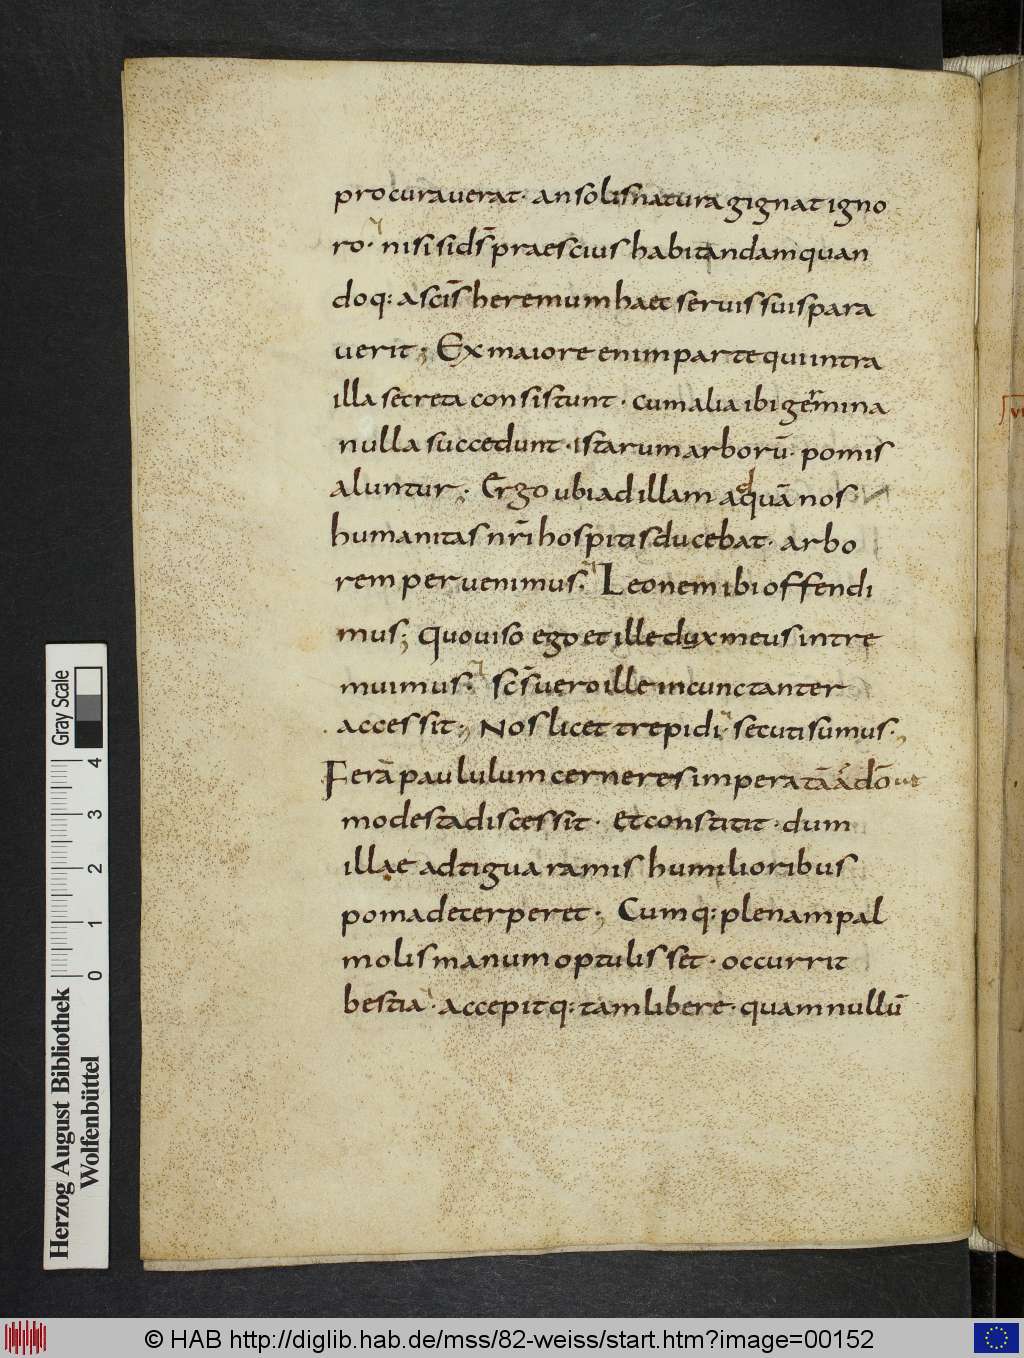 procurauerat· an solis natura gignat igno
ro· nisi si ds̄ praescius habitandam quan
doq: a scīs heremum haec seruis suis para
uerit; Ex maiore enim parte qui intra
illa secreta consistunt· cum alia ibi germina
nulla succedunt· istarum arborū· pomis
aluntur; Ergo ubi ad illam ad quā nos
humanitas nr̄i hospitis ducebat· arbo
rem peruenimus· Leonem ibi offendi
mus; Quo uiso ego et ille dux meus intre
muimus· sc̄s uero ille incunctanter
accessit; Nos licet trepidi· secuti sumus·;
Ferā paululum cerneres imperatā a dō ut
modesta discessit· et constitit· dum
illae adtigua ramis humilioribus
poma deterperet; Cumq: plenam pal
molis manum optulisset· occurrit
bestia· accepitq: tam libere· quam nullū
Gray Scale
4
3
2
1
0
Herzog August Bibliothek
Wolfenbüttel
© HAB http://diglib.hab.de/mss/82-weiss/start.htm?image=00152